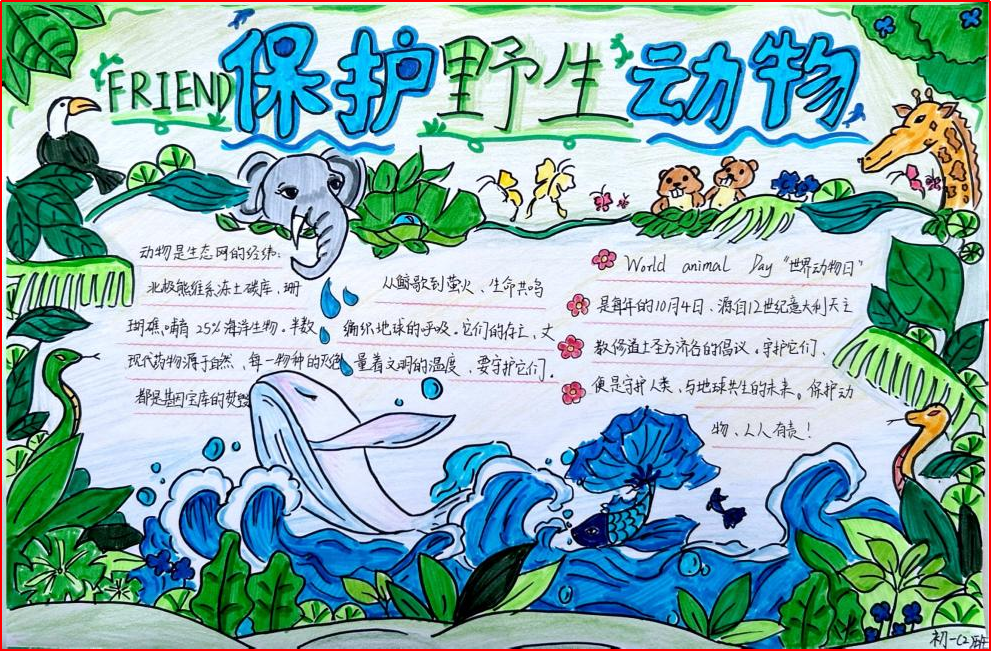 FRIEND 保护野生动物
动物是生态网的经纬:
北极熊维系冻土碳库、珊
瑚礁哺育25%海洋生物。半数
现代药物源于自然、每一物种的灭绝
都是基因宝库的焚毁
从鲸歌到萤火、生命共鸣
编织地球的呼吸。它们的存亡、丈
量着文明的温度,要守护它们。
World animal Day "世界动物日"
是每年的10月4日、源自12世纪意大利天主
教修道士圣方济各的倡议。守护它们、
便是守护人类、与地球共生的未来。保护动
物、人人有责!
初一(2)班